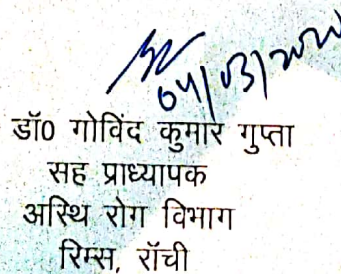 04/03/2020
डॉ0 गोविंद कुमार गुप्ता
सह प्राध्यापक
अस्थि रोग विभाग
रिम्स, राँची